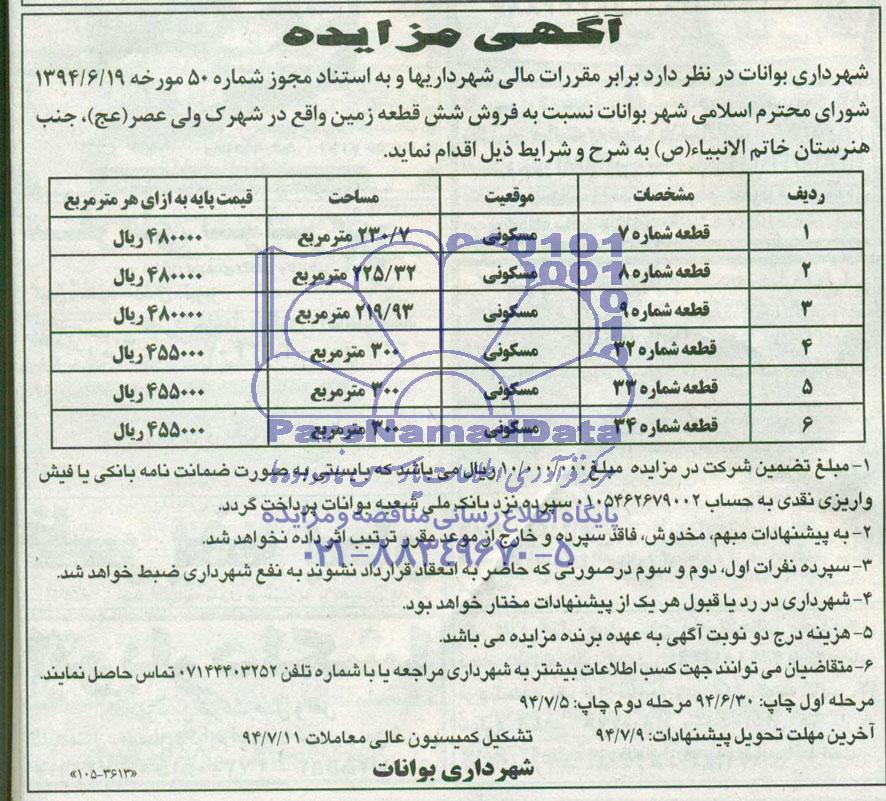 آگهی مزایده
شهرداری بوانات در نظر دارد برابر مقررات مالی شهرداریها و به استناد مجوز شماره ۵۰ مورخه ۱۳۹۴/۶/۱۹
شورای محترم اسلامی شهر بوانات نسبت به فروش شش قطعه زمین واقع در شهرک ولی عصر(عج)، جنب
هنرستان خاتم الانبیاء(ص) به شرح و شرایط ذیل اقدام نماید.
ردیف مشخصات موقعیت مساحت قیمت پایه به ازای هر مترمربع
۱ قطعه شماره ۷ مسکونی ۲۳۰/۷ مترمربع ۴۸۰۰۰۰ ریال
۲ قطعه شماره ۸ مسکونی ۲۲۵/۳۲ مترمربع ۴۸۰۰۰۰ ریال
۳ قطعه شماره ۹ مسکونی ۲۱۹/۹۳ مترمربع ۴۸۰۰۰۰ ریال
۴ قطعه شماره ۳۲ مسکونی ۳۰۰ مترمربع ۴۵۵۰۰۰ ریال
۵ قطعه شماره ۳۳ مسکونی ۳۰۰ مترمربع ۴۵۵۰۰۰ ریال
۶ قطعه شماره ۳۴ مسکونی ۳۰۰ مترمربع ۴۵۵۰۰۰ ریال
ParsNamadData
۱- مبلغ تضمین شرکت در مزایده مبلغ ۱۰/۰۰۰/۰۰۰ ریال می باشد که بایستی به صورت ضمانت نامه بانکی یا فیش
واریزی نقدی به حساب ۰۱۰۵۴۶۲۶۷۹۰۰۲ سپرده نزد بانک ملی شعبه بوانات پرداخت گردد.
پایگاه اطلاع رسانی مناقصه و مزایده
۲- به پیشنهادات مبهم، مخدوش، فاقد سپرده و خارج از موعد مقرر ترتیب اثر داده نخواهد شد.
۰۲۱-۸۸۳۴۹۶۷۰-۵
۳- سپرده نفرات اول، دوم و سوم درصورتی که حاضر به انعقاد قرارداد نشوند به نفع شهرداری ضبط خواهد شد.
۴- شهرداری در رد یا قبول هر یک از پیشنهادات مختار خواهد بود.
۵- هزینه درج دو نوبت آگهی به عهده برنده مزایده می باشد.
۶- متقاضیان می توانند جهت کسب اطلاعات بیشتر به شهرداری مراجعه یا با شماره تلفن ۰۷۱۴۴۴۰۳۲۵۲ تماس حاصل نمایند.
مرحله اول چاپ: ۹۴/۶/۳۰ مرحله دوم چاپ: ۹۴/۷/۵
آخرین مهلت تحویل پیشنهادات: ۹۴/۷/۹ تشکیل کمیسیون عالی معاملات ۹۴/۷/۱۱
شهرداری بوانات
«۱۰۵-۳۶۱۳»